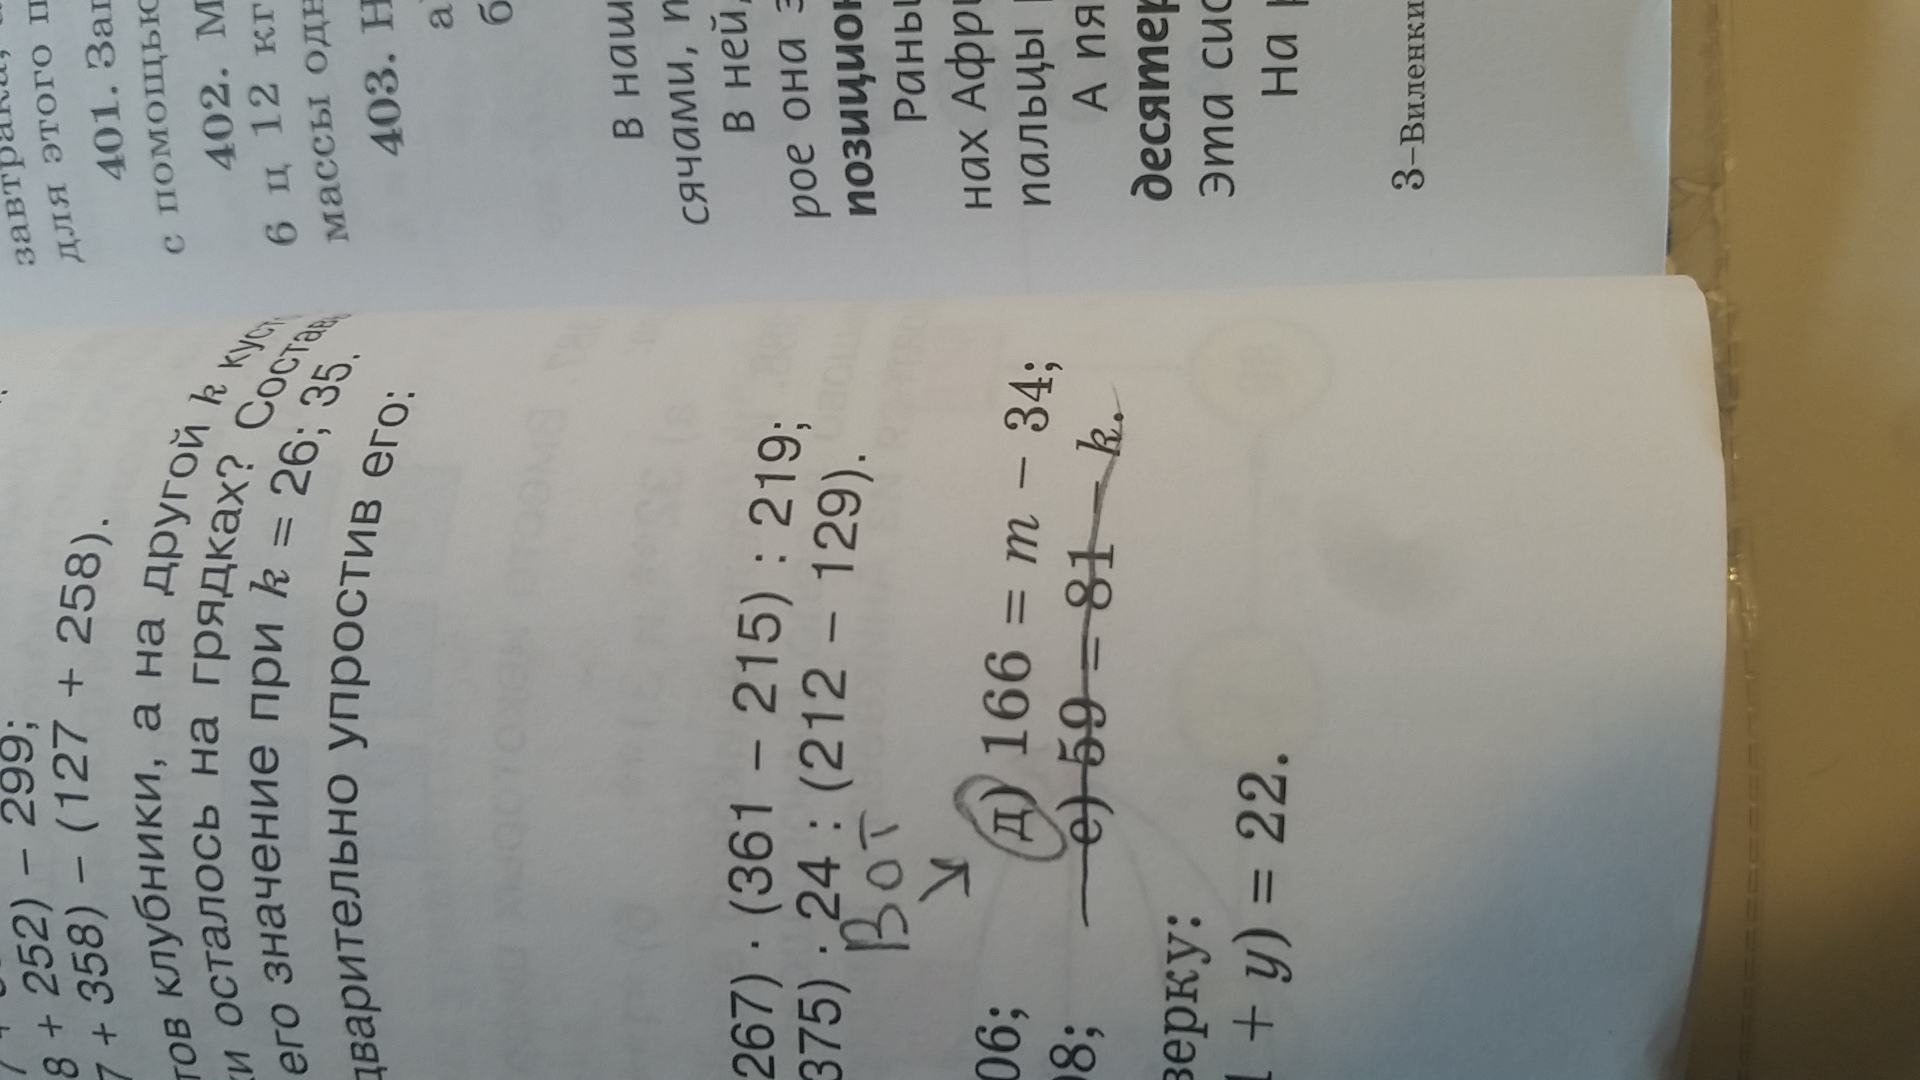 7 + 252) − 299;
7 + 358) − (127 + 258).
клубники, а на другой k
осталось на грядках?
его значение при k = 26; 35.
упростив его:
267) · (361 − 215) : 219;
375) · 24 : (212 − 129).
Вот
↘
06; д) 166 = m − 34;
98; е) 59 = 81 − k.
+ y) = 22.
для этого
401.
с помощью
402. М
6 ц 12 кг
массы
403. Н
а
б
В наш
сячами, п
В ней,
рое она з
позицион
Раны
нах Афри
пальцы
А пя
десятер
эта сис
На
3–Виленки